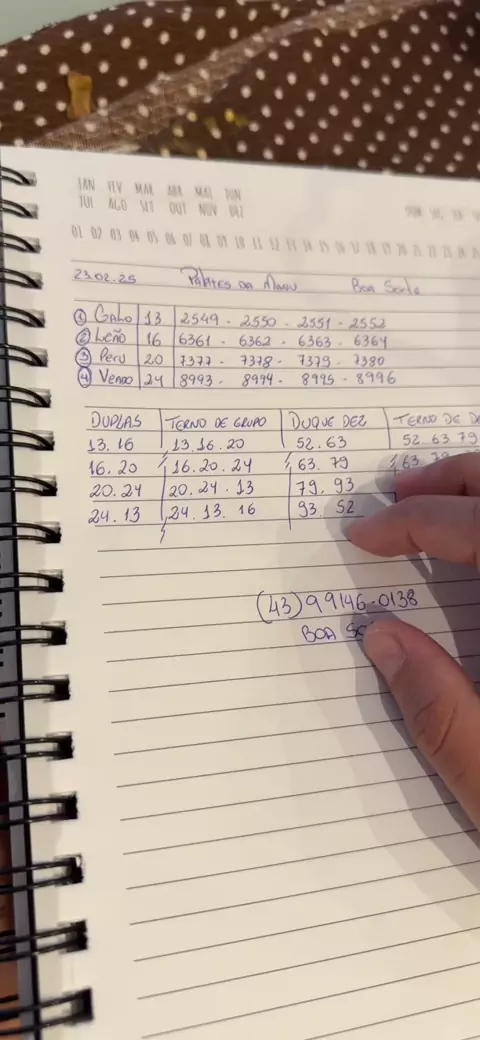 JAN FEV MAR ABR MAI JUN
JUL AGO SET OUT NOV DEZ
01 02 03 04 05 06 07 08 09 10 11 12 13 14 15 16 17 18 19 20 21 22 23 24 25
23.02.25 Palpites da Boa Sorte
① Galo 13 2549 - 2550 - 2551 - 2552
② Leão 16 6361 - 6362 - 6363 - 6364
③ Peru 20 7377 - 7378 - 7379 - 7380
④ Veado 24 8993 - 8994 - 8995 - 8996
DUPLAS TERNO DE GRUPO DUQUE DEZ TERNO DE
13.16 13.16.20 52.63 52.63.79
16.20 16.20.24 63.79 63.79
20.24 20.24.13 79.93
24.13 24.13.16 93.52
(43)99146-0138
BOA